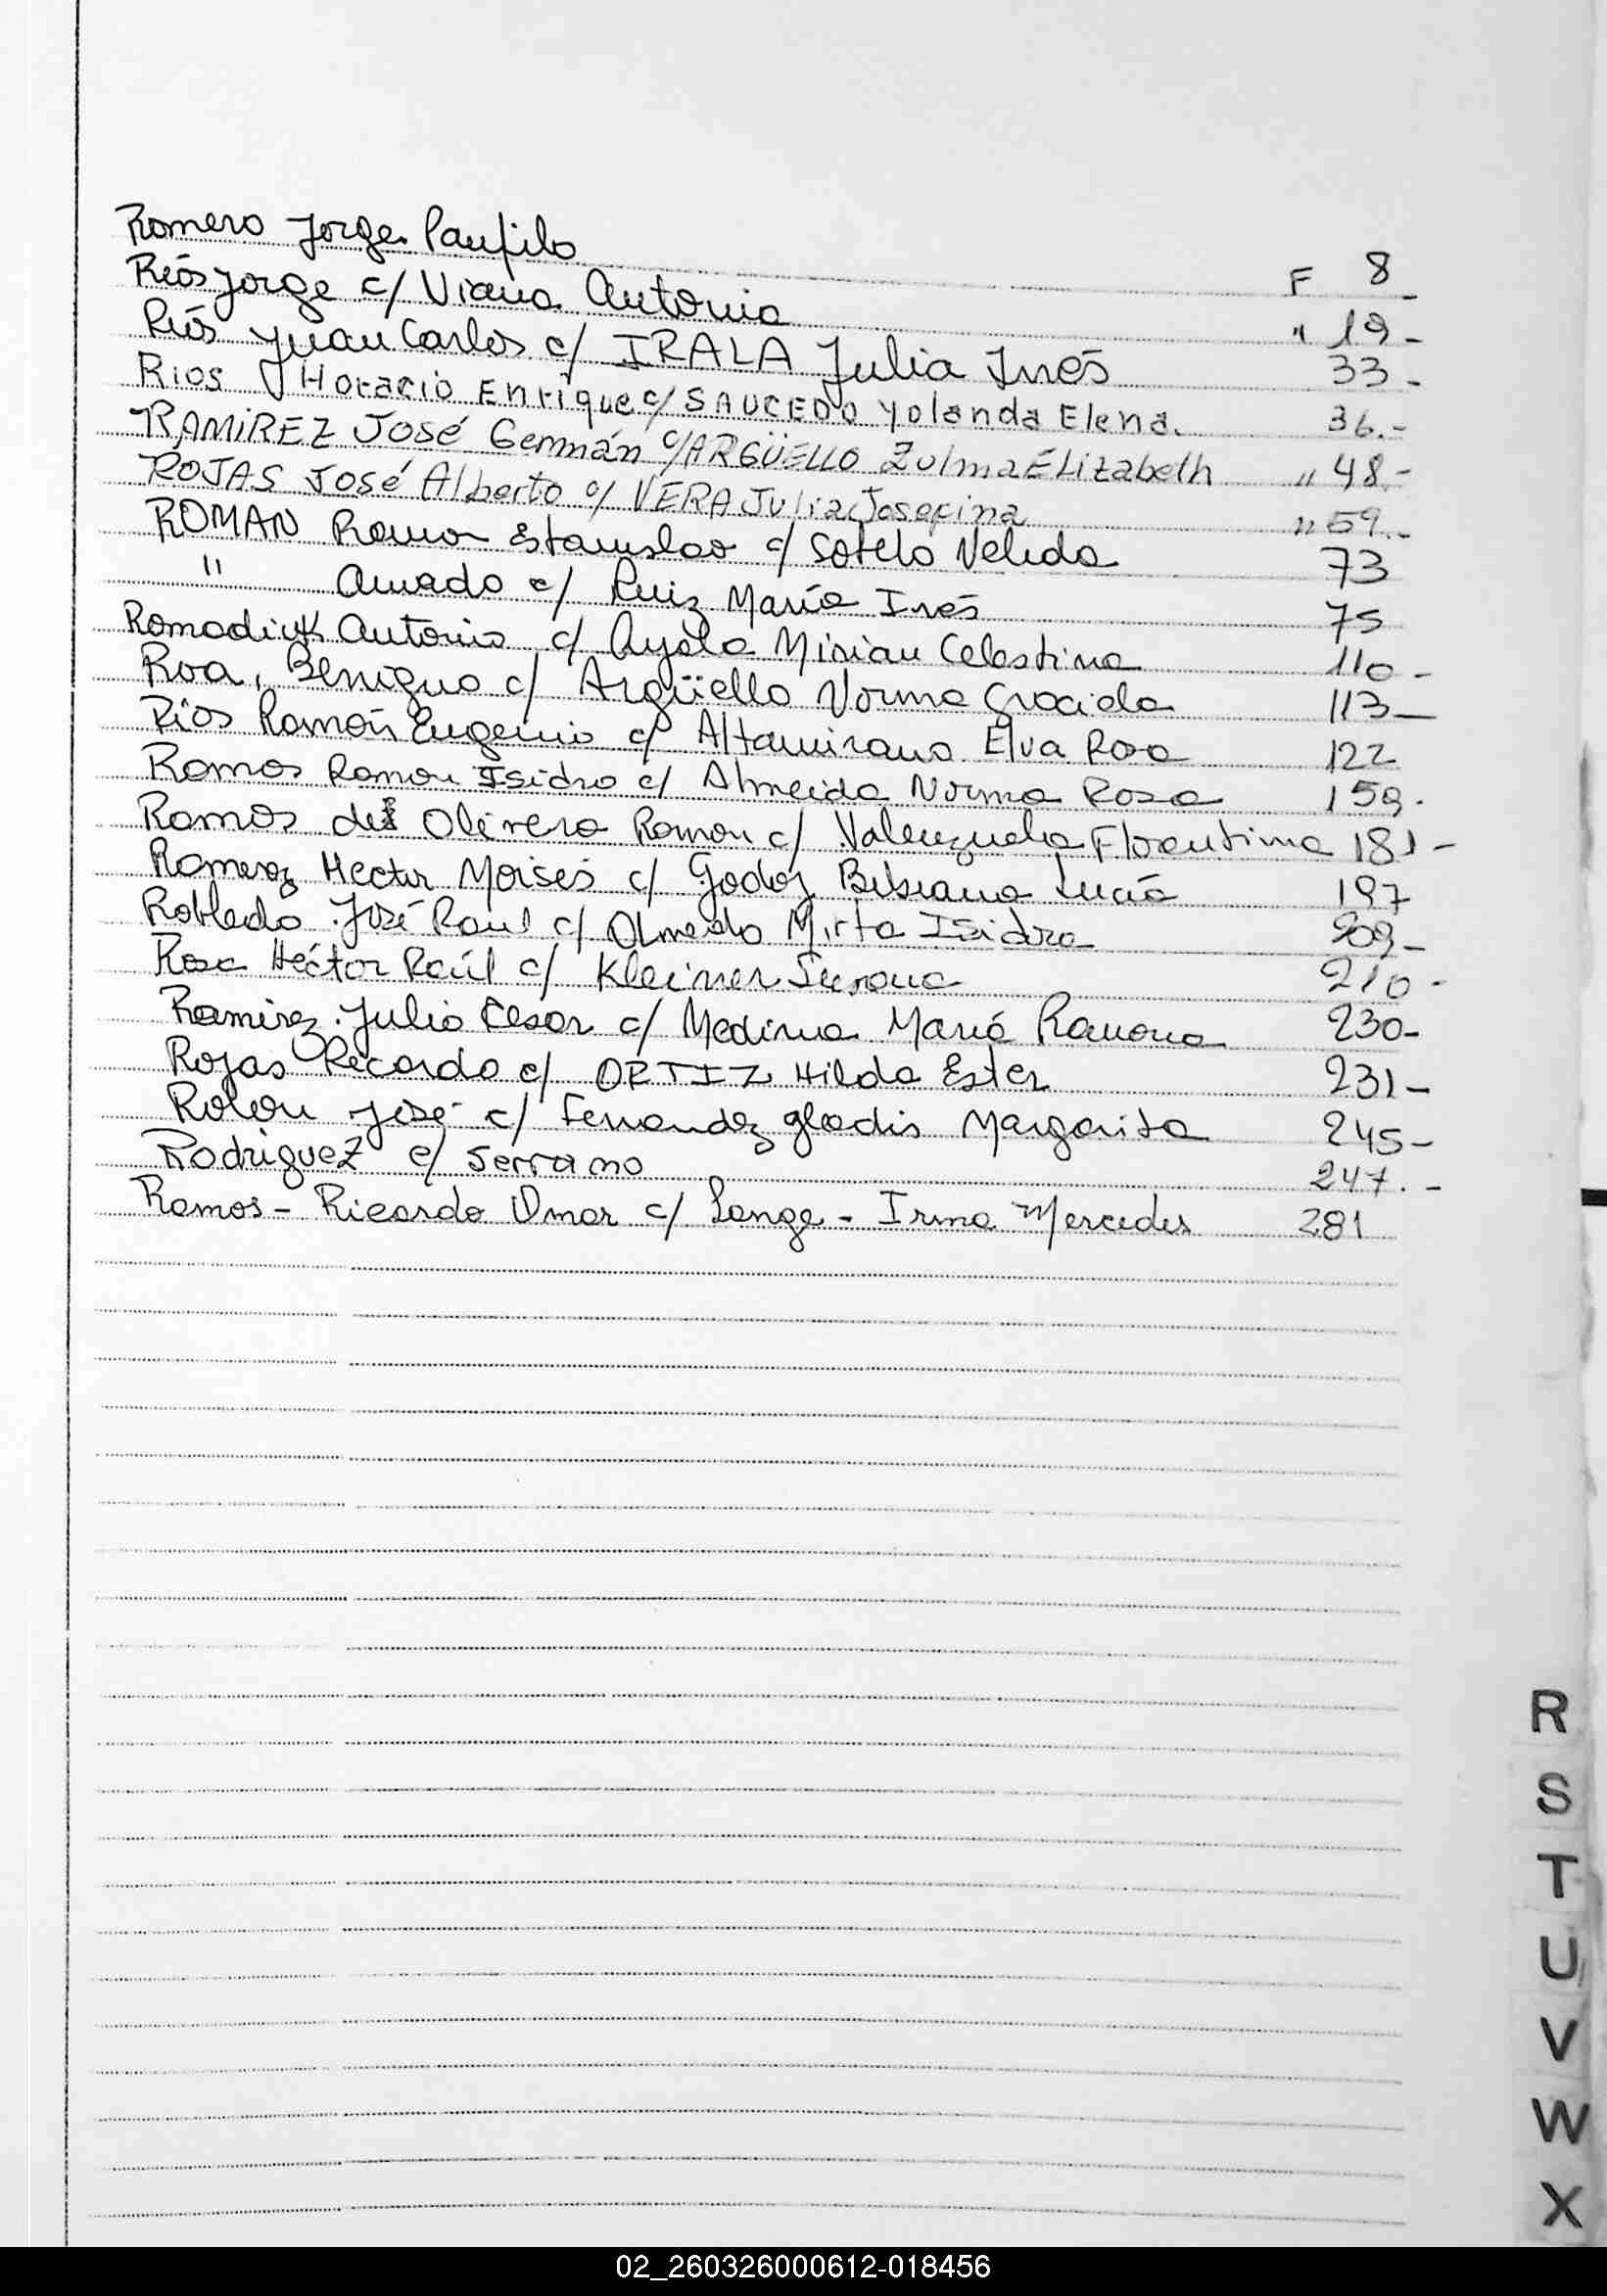 Romero Jorge Panfilo F 8-
Ríos Jorge c/ Viana Antonia " 19-
Ríos Juan Carlos c/ IRALA Julia Inés 33-
Rios Horacio Enrique c/ SAUCEDO Yolanda Elena. 36.-
RAMIREZ José Germán c/ ARGÜELLO Zulma Elizabeth " 48-
ROJAS José Alberto c/ VERA Julia Josefina " 59.-
ROMAN Ramon Estanislao c/ Sotelo Nelida 73
" Amado c/ Ruiz María Inés 75
Romadiuk Antonio c/ Ayala Mirian Celestina 110-
Roa, Benigno c/ Argüello Norma Graciela 113-
Ríos Ramón Eugenio c/ Altamirano Elva Rosa 122
Ramos Ramon Isidro c/ Almeida Norma Rosa 159.
Ramos de Olivera Ramon c/ Valenzuela Florentina 181-
Romero Hector Moises c/ Godoy Bibiana Lucía 197
Robledo José Raul c/ Olmedo Mirta Isidra 209-
Rosa Héctor Raúl c/ Kleiner Susana 210-
Ramirez Julio Cesar c/ Medina María Ramona 230-
Rojas Ricardo c/ ORTIZ Hilda Ester 231-
Rolon José c/ Fernandez Gladis Margarita 245-
Rodriguez c/ Serrano 247.-
Ramos - Ricardo Omar c/ Lange - Irma Mercedes 281
R
S
T
U
V
W
X
02_260326000612-018456